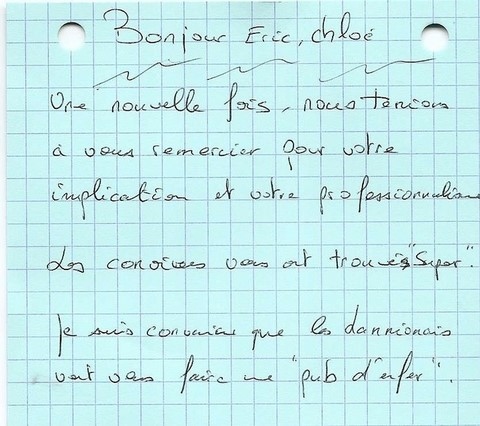 Bonjour Eric, chloé
Une nouvelle fois, nous tenions
à vous remercier pour votre
implication et votre professionnalisme
Les convives vous ont trouvés "Super".
je suis convaincu que les dannionais
vont vous faire une "pub d'enfer".